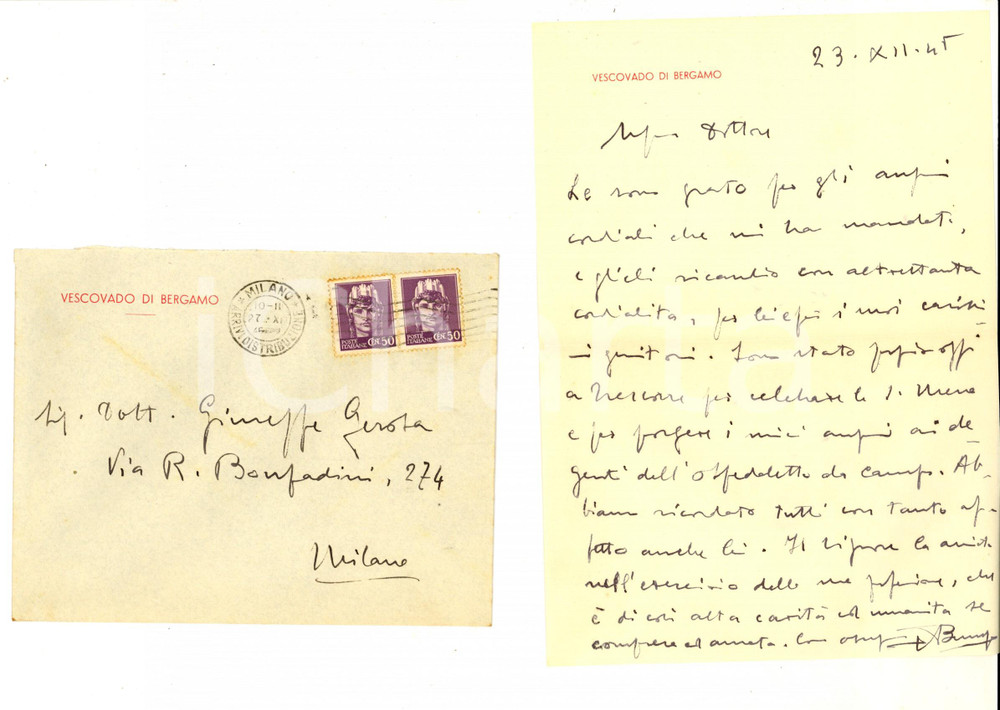 VESCOVADO DI BERGAMO
MILANO
FERROVIA DISTRIBUZIONE
10-11
27 XI
POSTE ITALIANE CEN. 50
POSTE ITALIANE CEN. 50
Sig. Dott. Giuseppe Gerosa
Via R. Bonfadini, 274
Milano
iCharta
23.XII.45
VESCOVADO DI BERGAMO
Dottore
Le sono grato per gli auguri
cordiali che mi ha mandati,
e glieli ricambio con altrettanta
cordialità, per lei e per i suoi carissi
mi genitori. Sono stato proprio oggi
a Trescore per celebrare la S. Messa
e per porgere i miei auguri ai de
genti dell'Ospedaletto da campo. Ab-
biamo ricordato tutti con tanto af-
fetto anche lei. Il Signore la
nell'esercizio della sua professione, che
è di così alta carità ed umanità se
compresa ed amata. Con